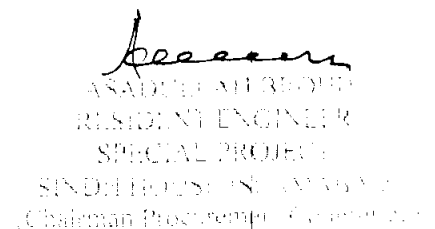 ASADULLAH
RESIDENT ENGINEER
SPECIAL PROJECT
SINDH HOUSE ISLAMABAD
Chairman Procurement